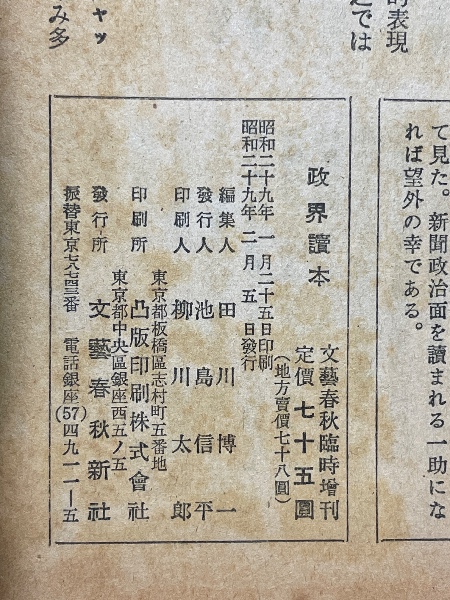 て見た。新聞政治面を讀まれる一助にな
れば望外の幸である。
的表現
では
ャッ
み多
政界讀本
文藝春秋臨時增刊
定價七十五圓
(地方賣價七十八圓)
昭和二十九年 一月二十五日印刷
昭和二十九年 二月 五日發行
編集人 田川博一
發行人 池島信平
印刷人 柳川太郎
東京都板橋區志村町五番地
印刷所 凸版印刷株式會社
東京都中央區銀座西五ノ五
發行所 文藝春秋新社
振替東京七八七四三番 電話銀座(57)四九一一―五